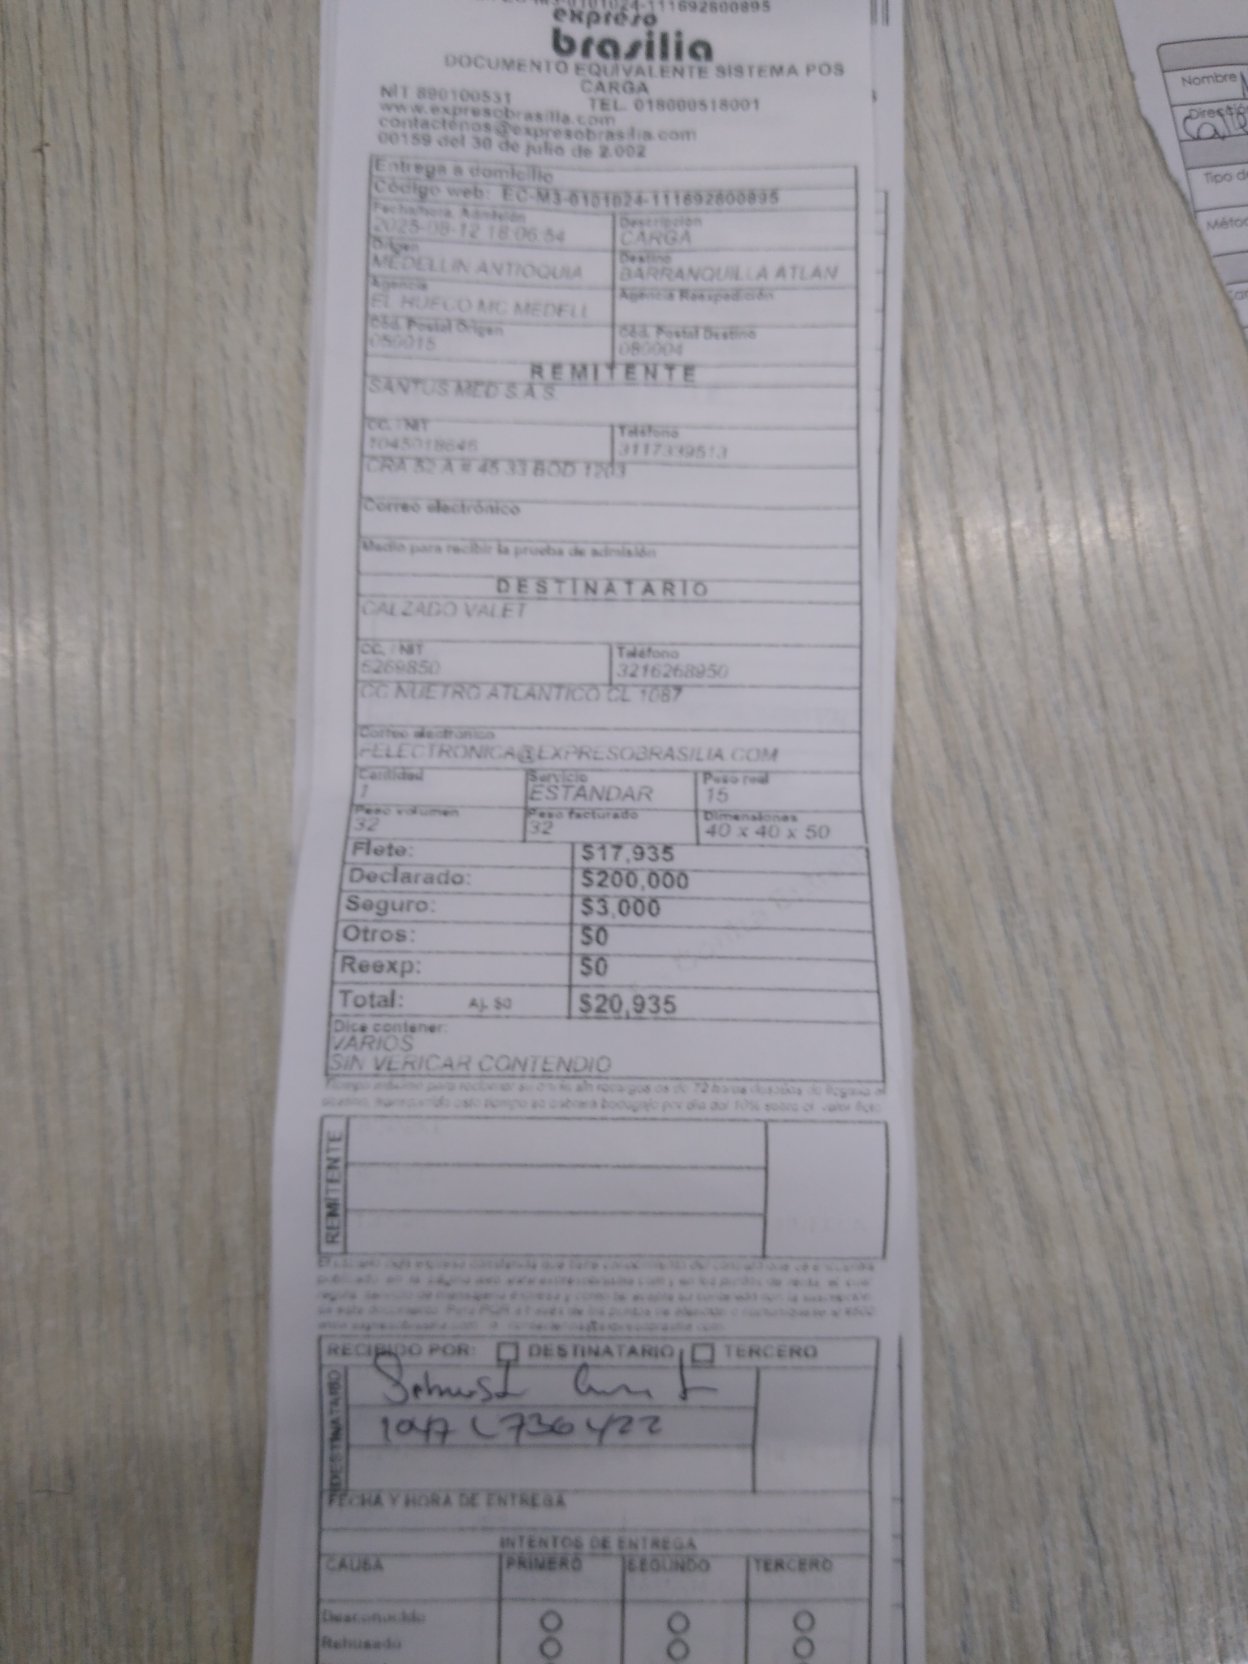 expreso
brasilia
DOCUMENTO EQUIVALENTE SISTEMA POS
CARGA
NIT 890100531
TEL. 018000518001
www.expresobrasilia.com
contactenos@expresobrasilia.com
00159 del 30 de julio de 2.002
Entrega a domicilio
Código web: EC-M3-0101024-111692600895
Fecha/hora. Admisión
Descripcion
2025-08-12 18:06:54
CARGA
Origen
Destino
MEDELLIN ANTIOQUIA
BARRANQUILLA ATLAN
Agencia
Agencia Reexpedición
EL HUECO MC MEDELL
Cód. Postal Origen
Cód. Postal Destino
050015
080004
REMITENTE
SANTUS MED S.A.S.
CC. / NIT
Teléfono
1045018646
3117339513
CRA 52 A # 45 33 BOD 1203
Correo electrónico
Medio para recibir la prueba de admisión
DESTINATARIO
CALZADO VALET
CC. / NIT
Teléfono
6269850
3216268950
CC NUETRO ATLANTICO CL 1087
Correo electrónico
FELECTRONICA@EXPRESOBRASILIA.COM
Cantidad
Servicio
Peso real
1
ESTANDAR
15
Peso volumen
Peso facturado
Dimensiones
32
32
40 x 40 x 50
Flete: $17,935
Declarado: $200,000
Seguro: $3,000
Otros: $0
Reexp: $0
Total: Aj. $0 $20,935
Dice contener:
VARIOS
SIN VERICAR CONTENDIO
REMITENTE
RECIBIDO POR: DESTINATARIO TERCERO
DESTINATARIO
FECHA Y HORA DE ENTREGA
INTENTOS DE ENTREGA
CAUSA PRIMERO SEGUNDO TERCERO
Desconocido
Rehusado
Nombre
Dirección
Calle
Tipo d
Métod